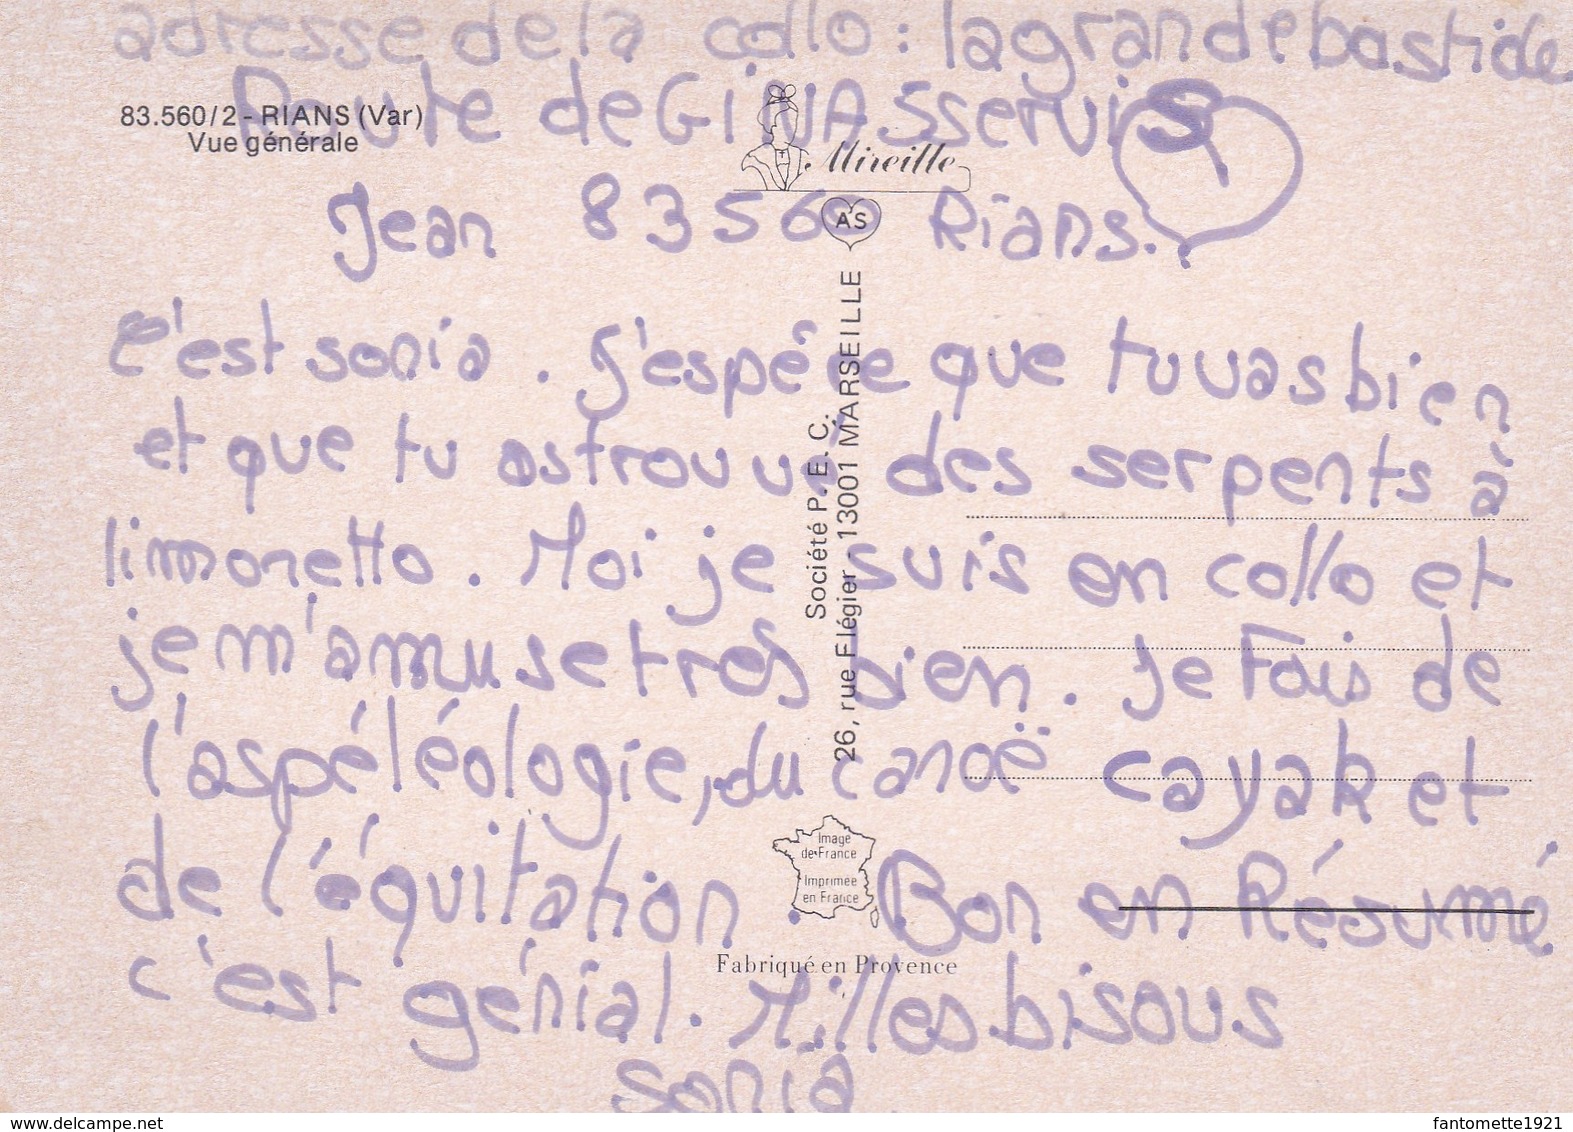 adresse de la collo : la grande bastide
Route de GiNASservis
83.560/2 - RIANS (Var)
Vue générale
Mireille
Jean 83560 Rians.
AS
c'est sonia . J'espére que tu vas bien
et que tu as trouvé des serpents à
limonetto . Moi je suis en collo et
je m'amuse tres bien . Je Fais de
l'aspéléologie, du canoë cayak et
de l'équitation . Bon en Résumé
c'est génial . Milles bisous
sonia
Société P. E. C.
26, rue Flégier - 13001 MARSEILLE
Image
de France
Imprimée
en France
Fabriqué en Provence
delcampe.net
fantomette1921